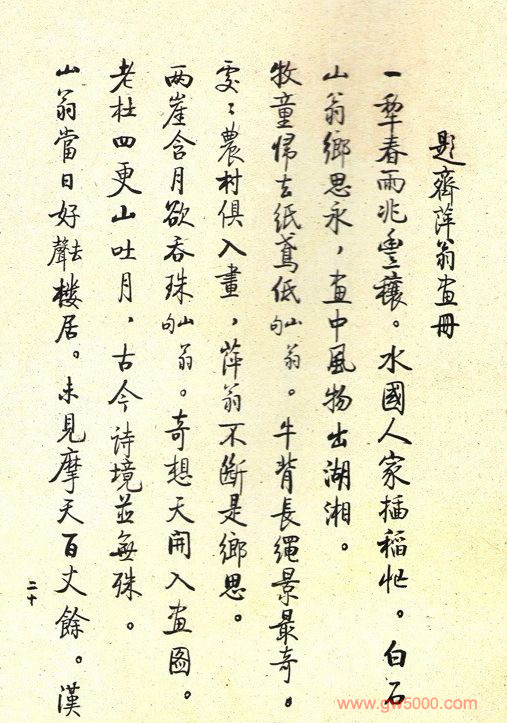 題齊萍翁画冊
一犂春雨兆豐穰。水國人家插稻忙。白石
山翁鄉思永，画中風物出湖湘。
牧童歸去紙鳶低山翁句。牛背長繩景最奇。
處〻農村俱入畫，萍翁不斷是鄉思。
两崖含月欲吞珠山翁句。奇想天開入画图。
老杜四更山吐月，古今詩境並無殊。
山翁當日好去聲楼居。未見摩天百丈餘。漢
二十
www.gw5000.com